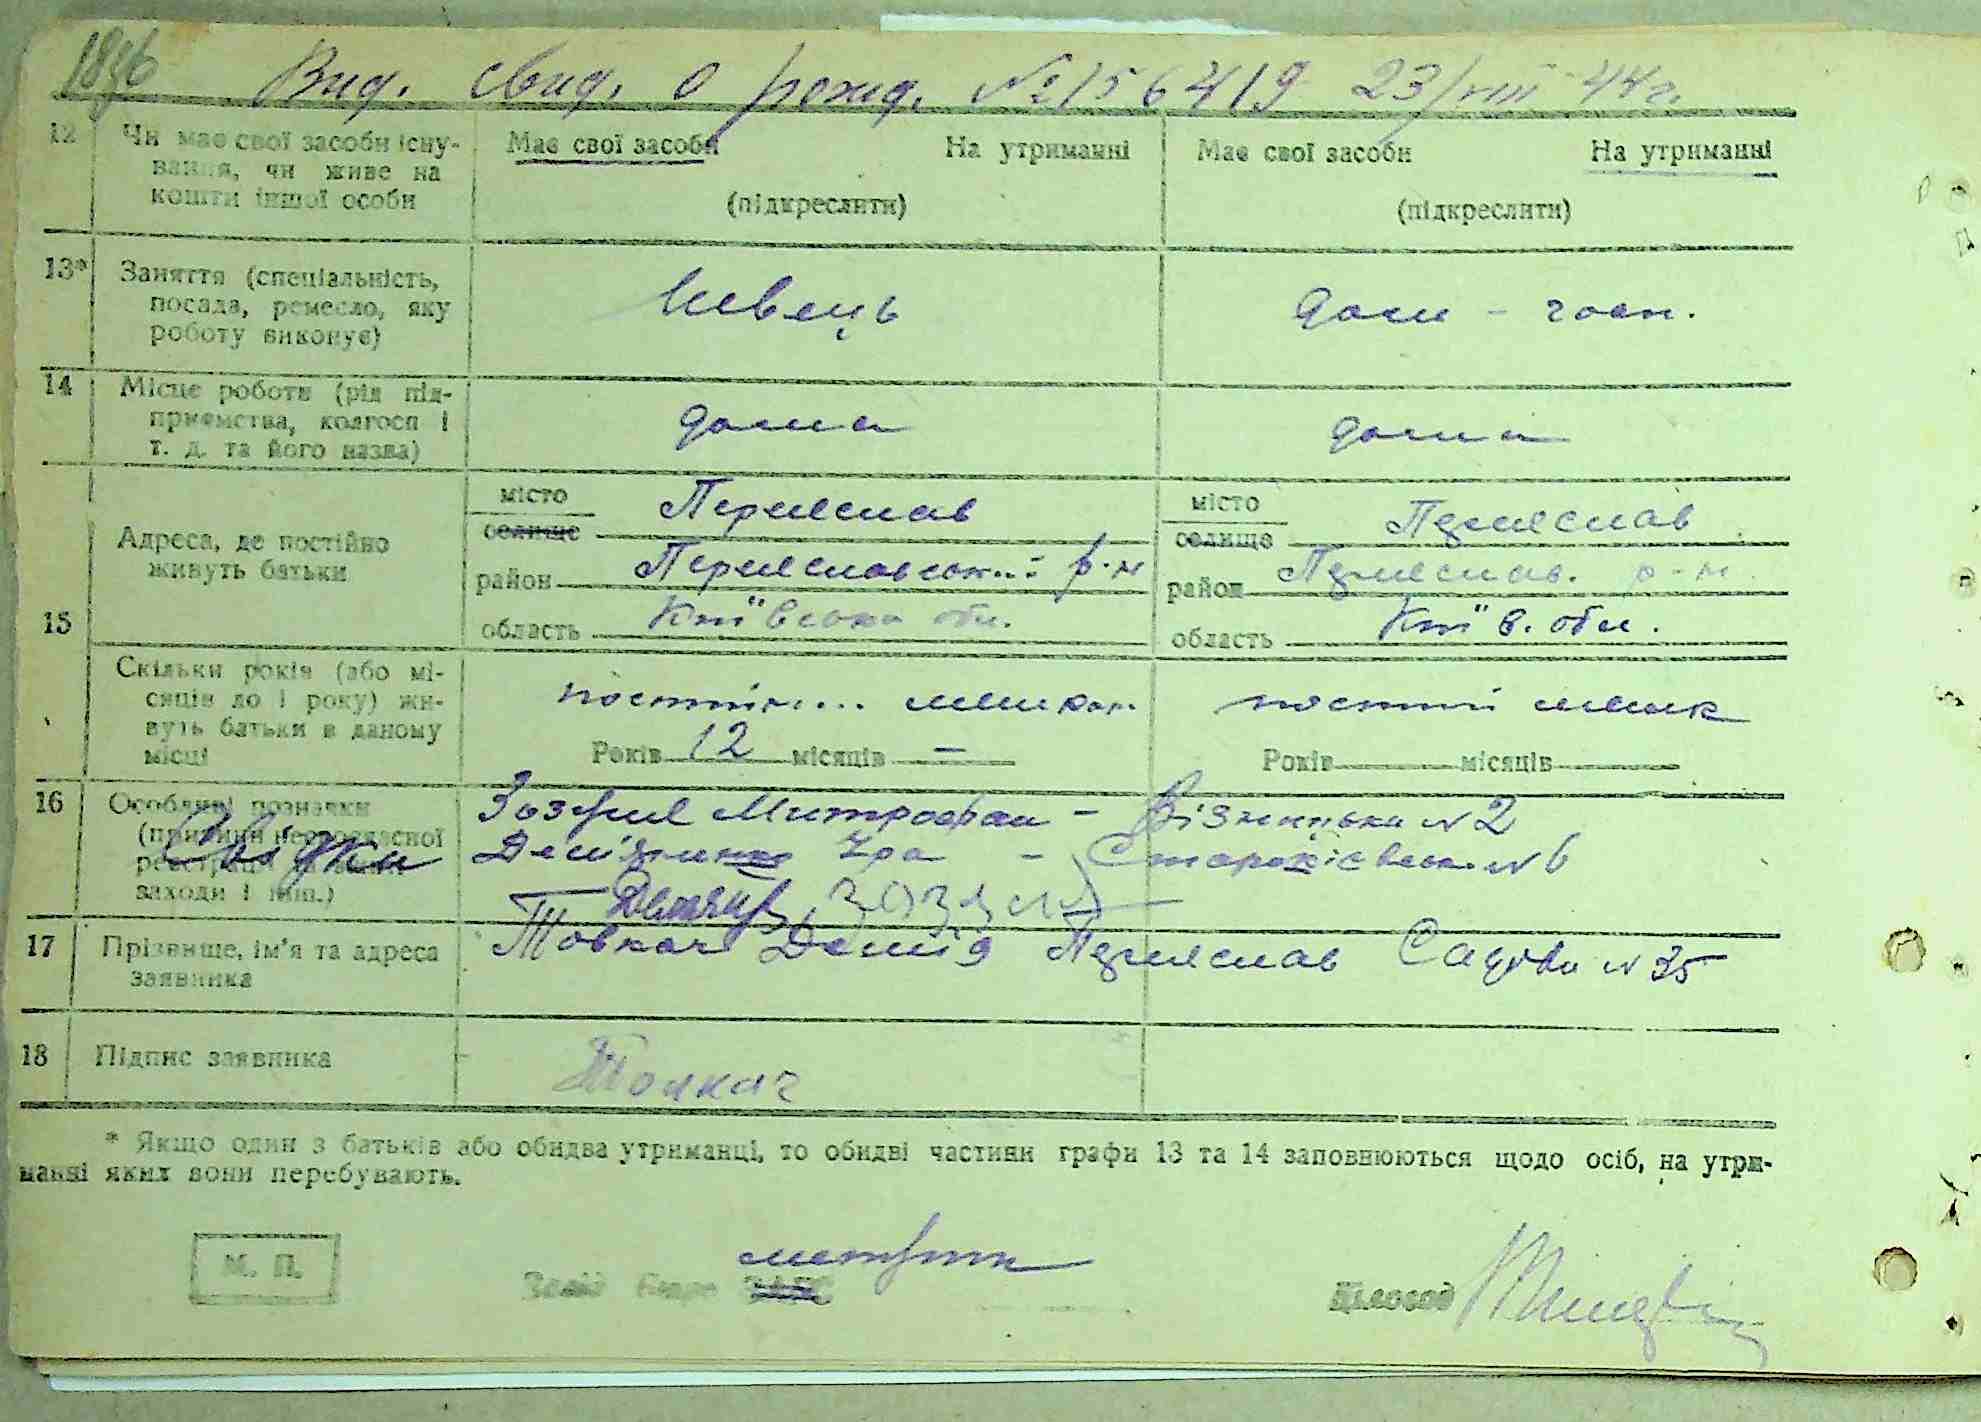 1846
Вид. свид. о рожд. №156419 23/VIII 44 г.
12 Чи має свої засоби існу-
вання, чи живе на
кошти іншої особи
Має свої засоби На утриманні
(підкреслити)
Має свої засоби На утриманні
(підкреслити)
13* Заняття (спеціальність,
посада, ремесло, яку
роботу виконує)
Швець
дом - госп.
14 Місце роботи (рід під-
приємства, колгосп і
т. д. та його назва)
дома
дома
15
Адреса, де постійно
живуть батьки
місто
селище Переяслав
район Переяславський р-н
область Київська обл.
місто
селище Переяслав
район Переяслав. р-н.
область Київ. обл.
Скільки років (або мі-
сяців до 1 року) жи-
вуть батьки в даному
місці
Років 12 місяців —
Років місяців
16 Особливі позначки
(причини несвоєчасної
реєстрації
заходи і інш.)
Свідки
Зозуля Митрофан - №2
- №6
17 Прізвище, ім'я та адреса
заявника
Товкач Демід Переяслав Садова №35
18 Підпис заявника
Товкач
* Якщо один з батьків або обидва утриманці, то обидві частини графи 13 та 14 заповнюються щодо осіб, на утри-
манні яких вони перебувають.
М. П.
метрик
Зав. бюро ЗАГС
Діловод